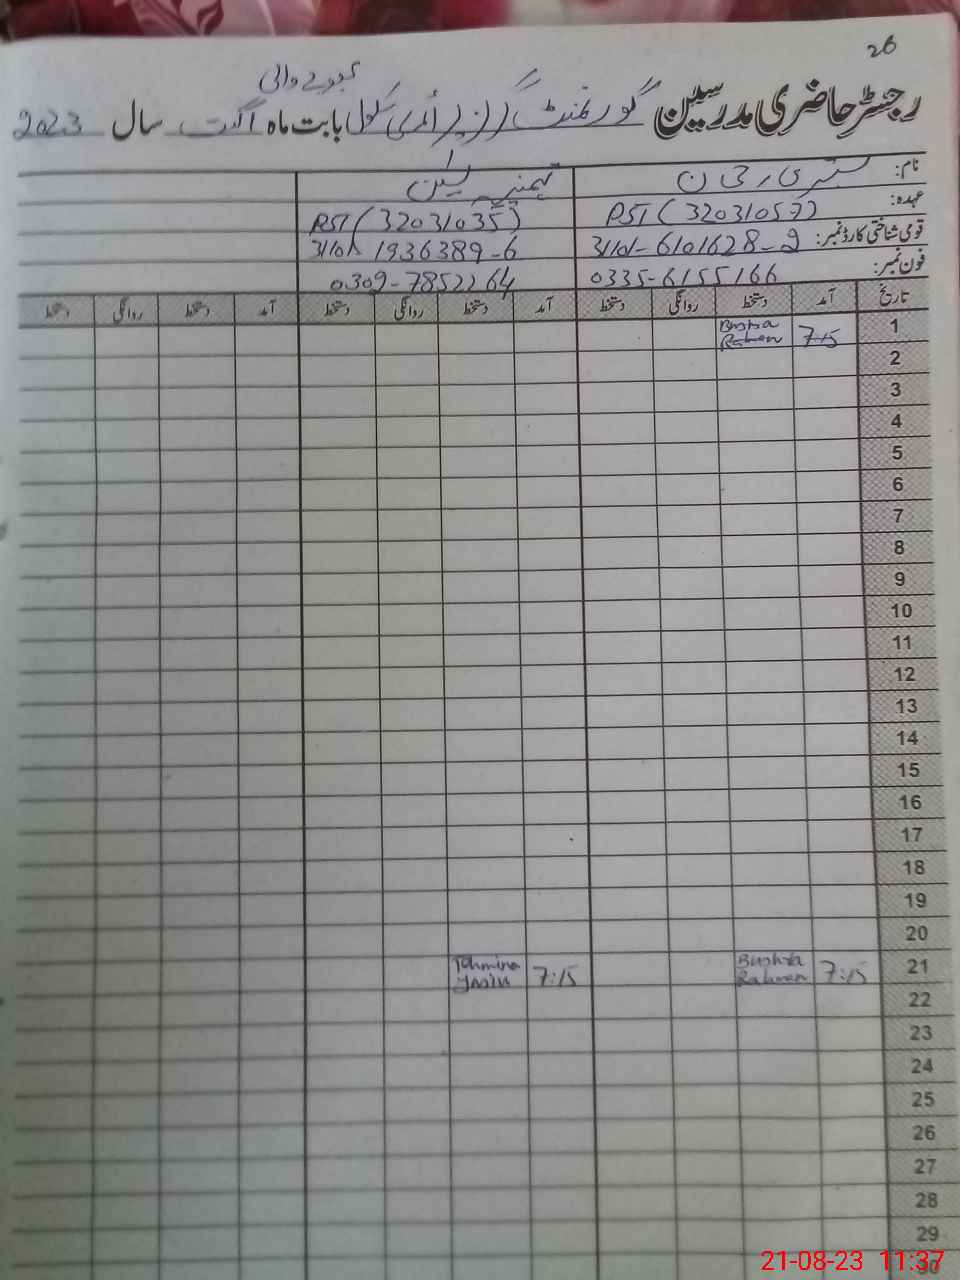 26
رجسٹر حاضری مدرسین گورنمنٹ گرلز پرائمری سکول بابت ماہ اگست سال 2023
نام: بشریٰ رحمٰن تہمینہ یٰسین
عہدہ: PST (32031057) PST (32031035)
قومی شناختی کارڈ نمبر: 31101-6101628-2 31101-1936389-6
فون نمبر: 0335-6155166 0309-7852264
تاریخ آمد دستخط روانگی دستخط آمد دستخط روانگی دستخط آمد دستخط روانگی دستخط
1 7:15 Bushra Rahman
2
3
4
5
6
7
8
9
10
11
12
13
14
15
16
17
18
19
20
21 7:15 Bushra Rahman 7:15 Tahmina Yasin
22
23
24
25
26
27
28
29
30
21-08-23 11:37